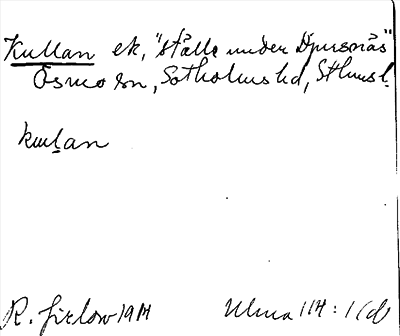 Kullan ek, "ställe under Djursnäs"
Ösmo sn, Sotholms hd, Sthms l.
kuḷan
R. Firlow 1914
Ulma 114:1(d)